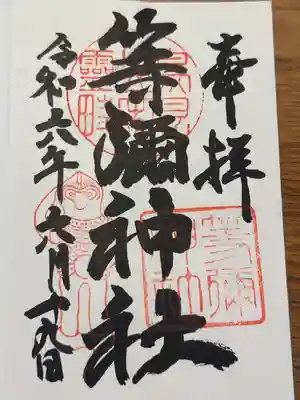 奉拝
等彌神社
令和六年六月十九日
等彌神社